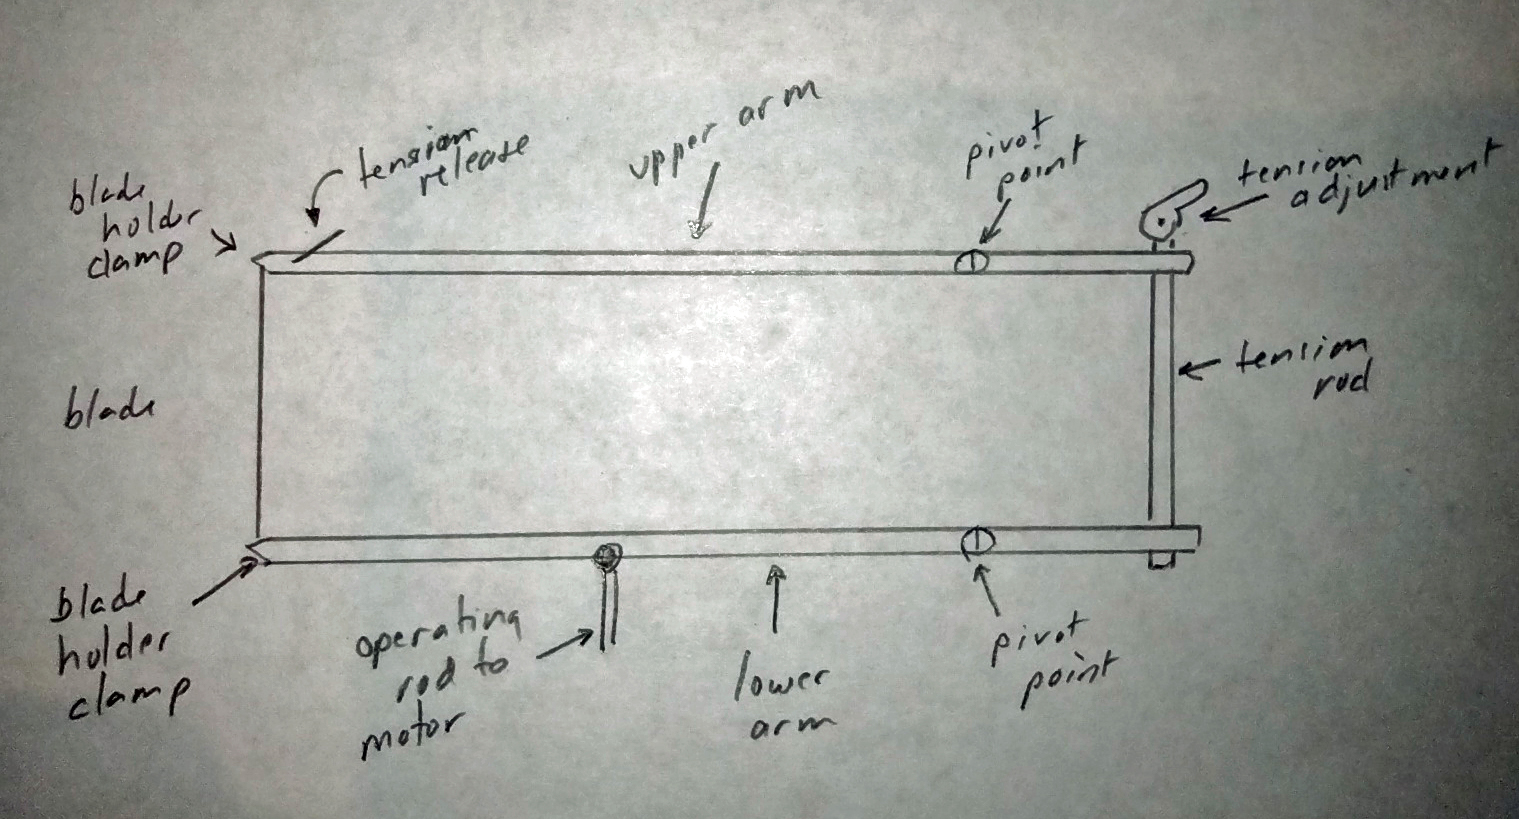 tension
release
upper arm
pivot
point
tension
adjustment
blade
holder
clamp
blade
tension
rod
blade
holder
clamp
operating
rod to
motor
lower
arm
pivot
point